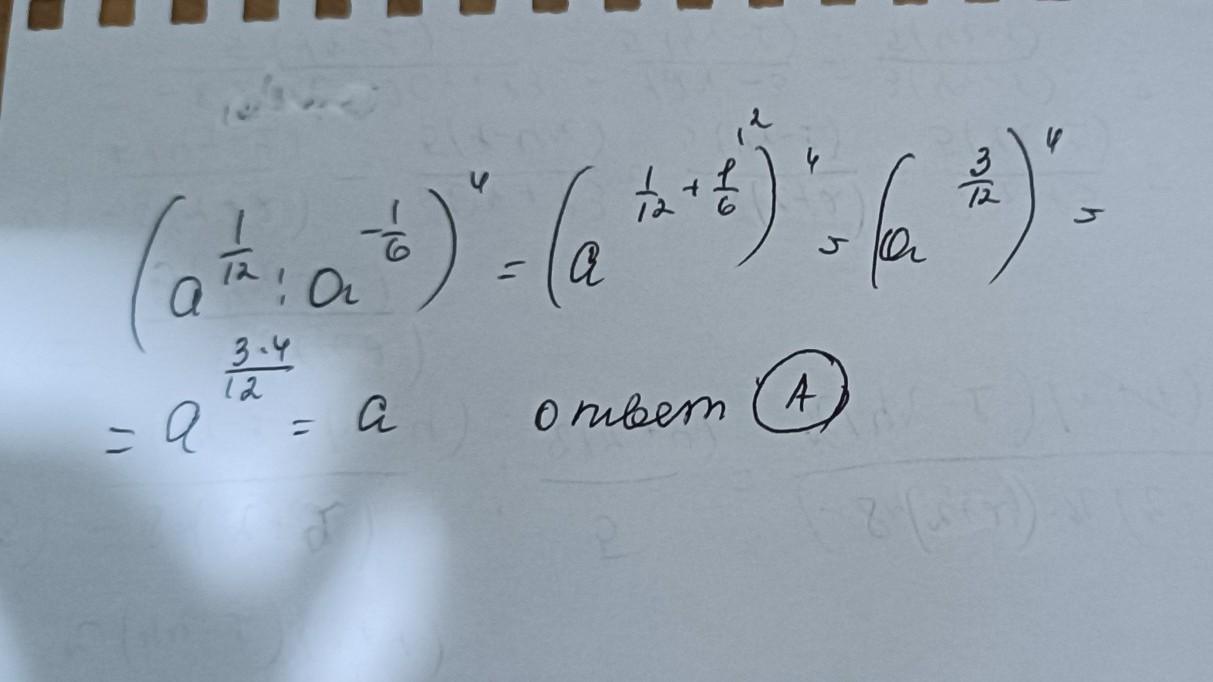 (a^{\frac{1}{12}} : a^{-\frac{1}{6}})^4 = (a^{\frac{1}{12} + \frac{1}{6}^{\,12}})^4 = (a^{\frac{3}{12}})^4 =
= a^{\frac{3·4}{12}} = a ответ A